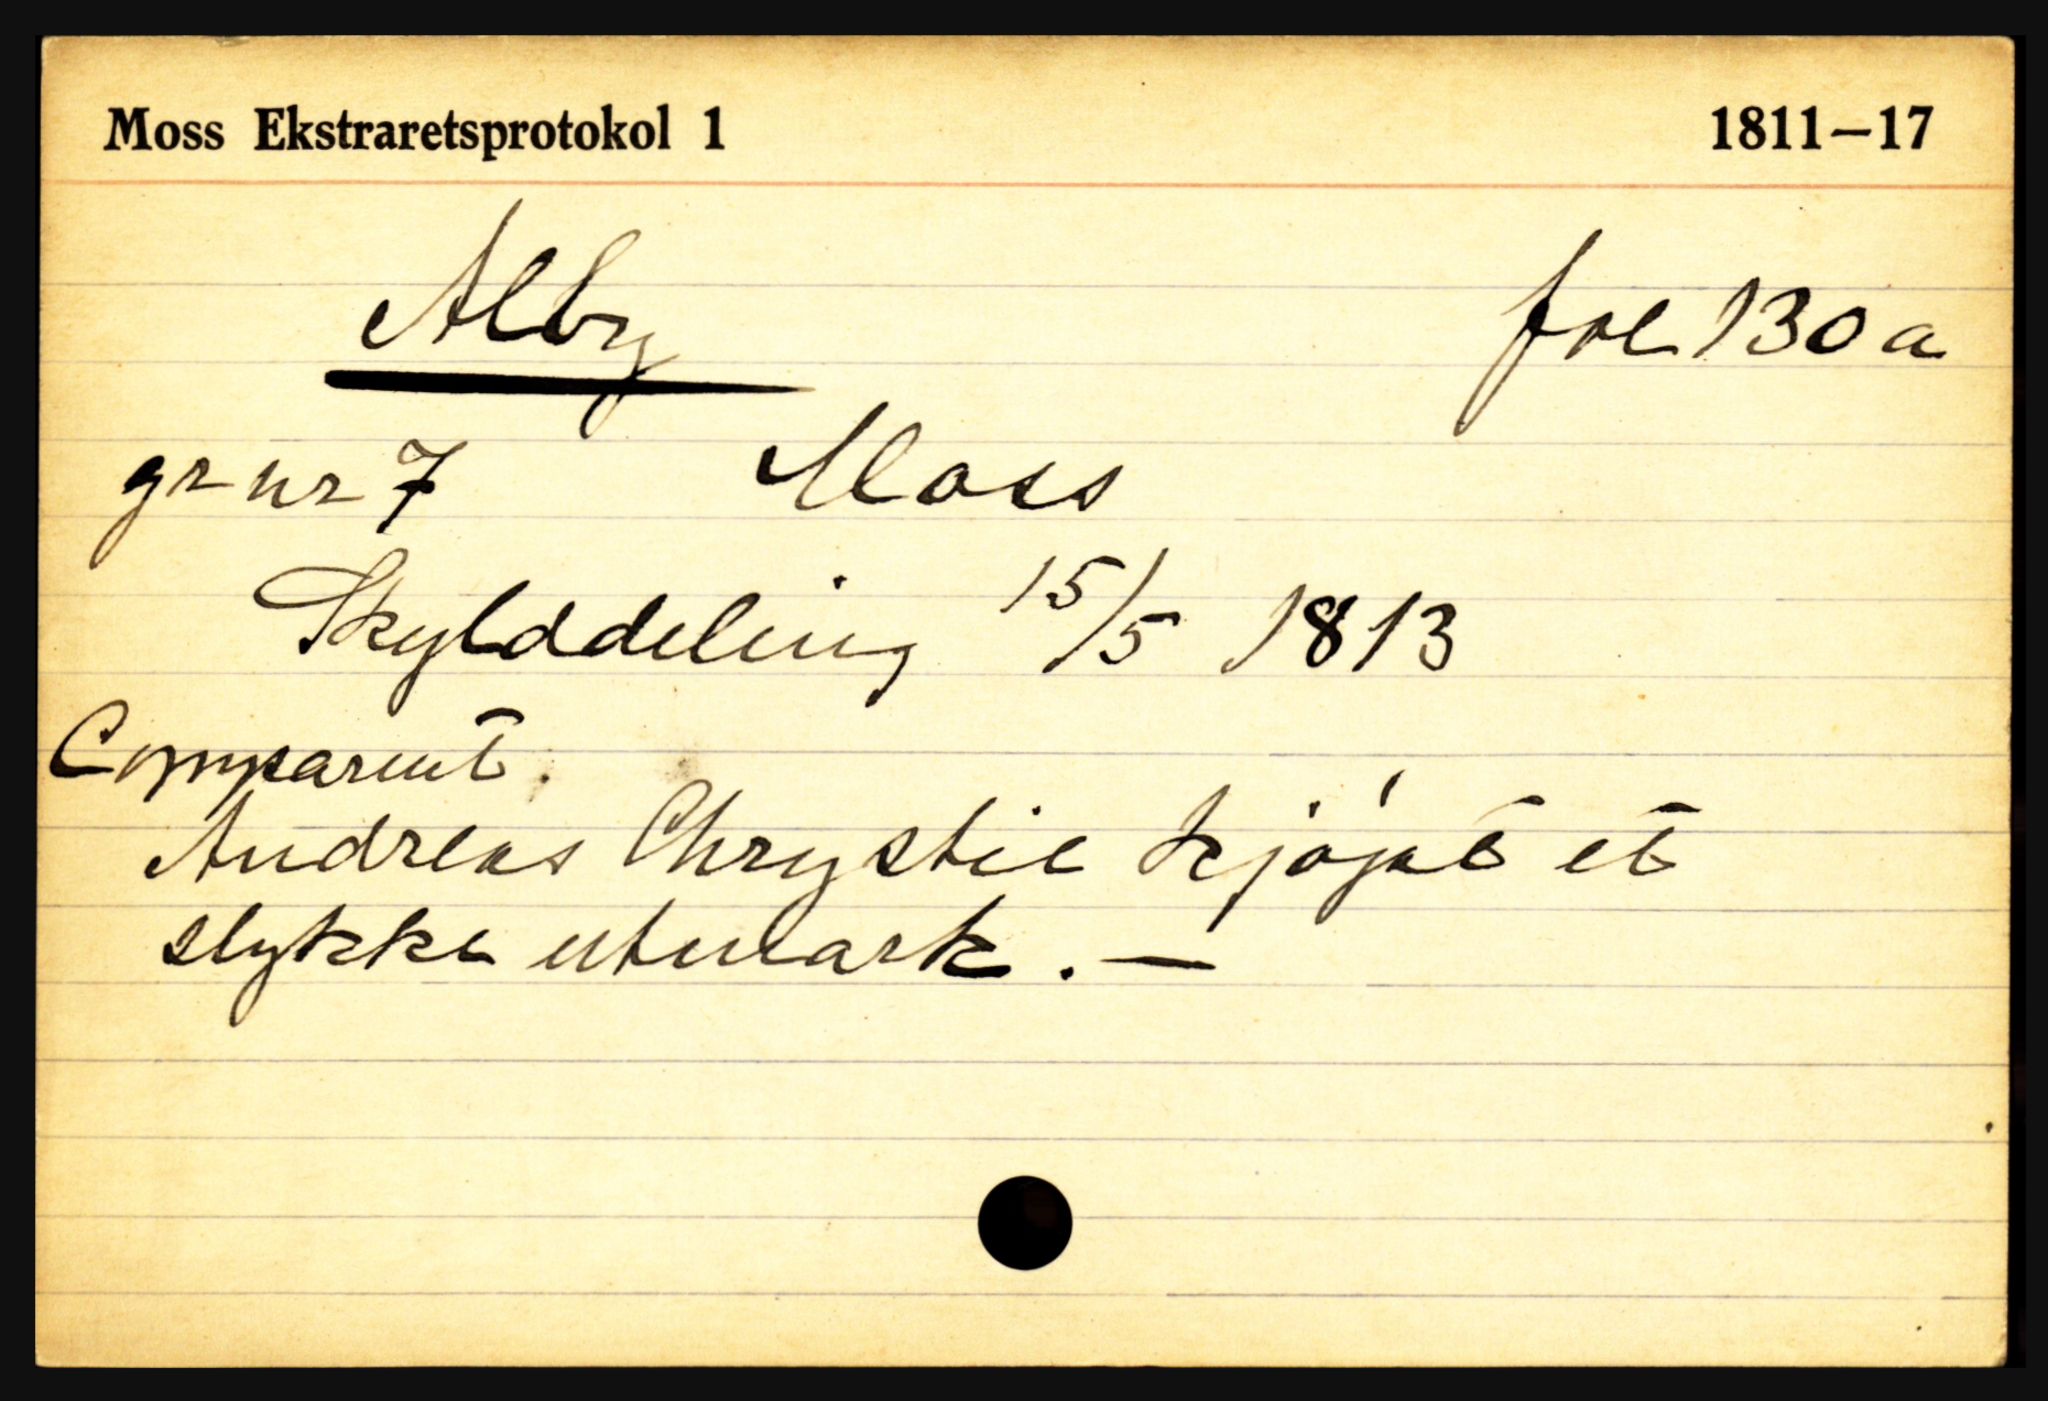 Moss Ekstraretsprotokol 1 1811–17
Alby fol 130 a
gr nr 7 Moss
Skylddeling 15/5 1813
Comparent.
Andreas Chrystie kjøpt et
stykke utmark. —